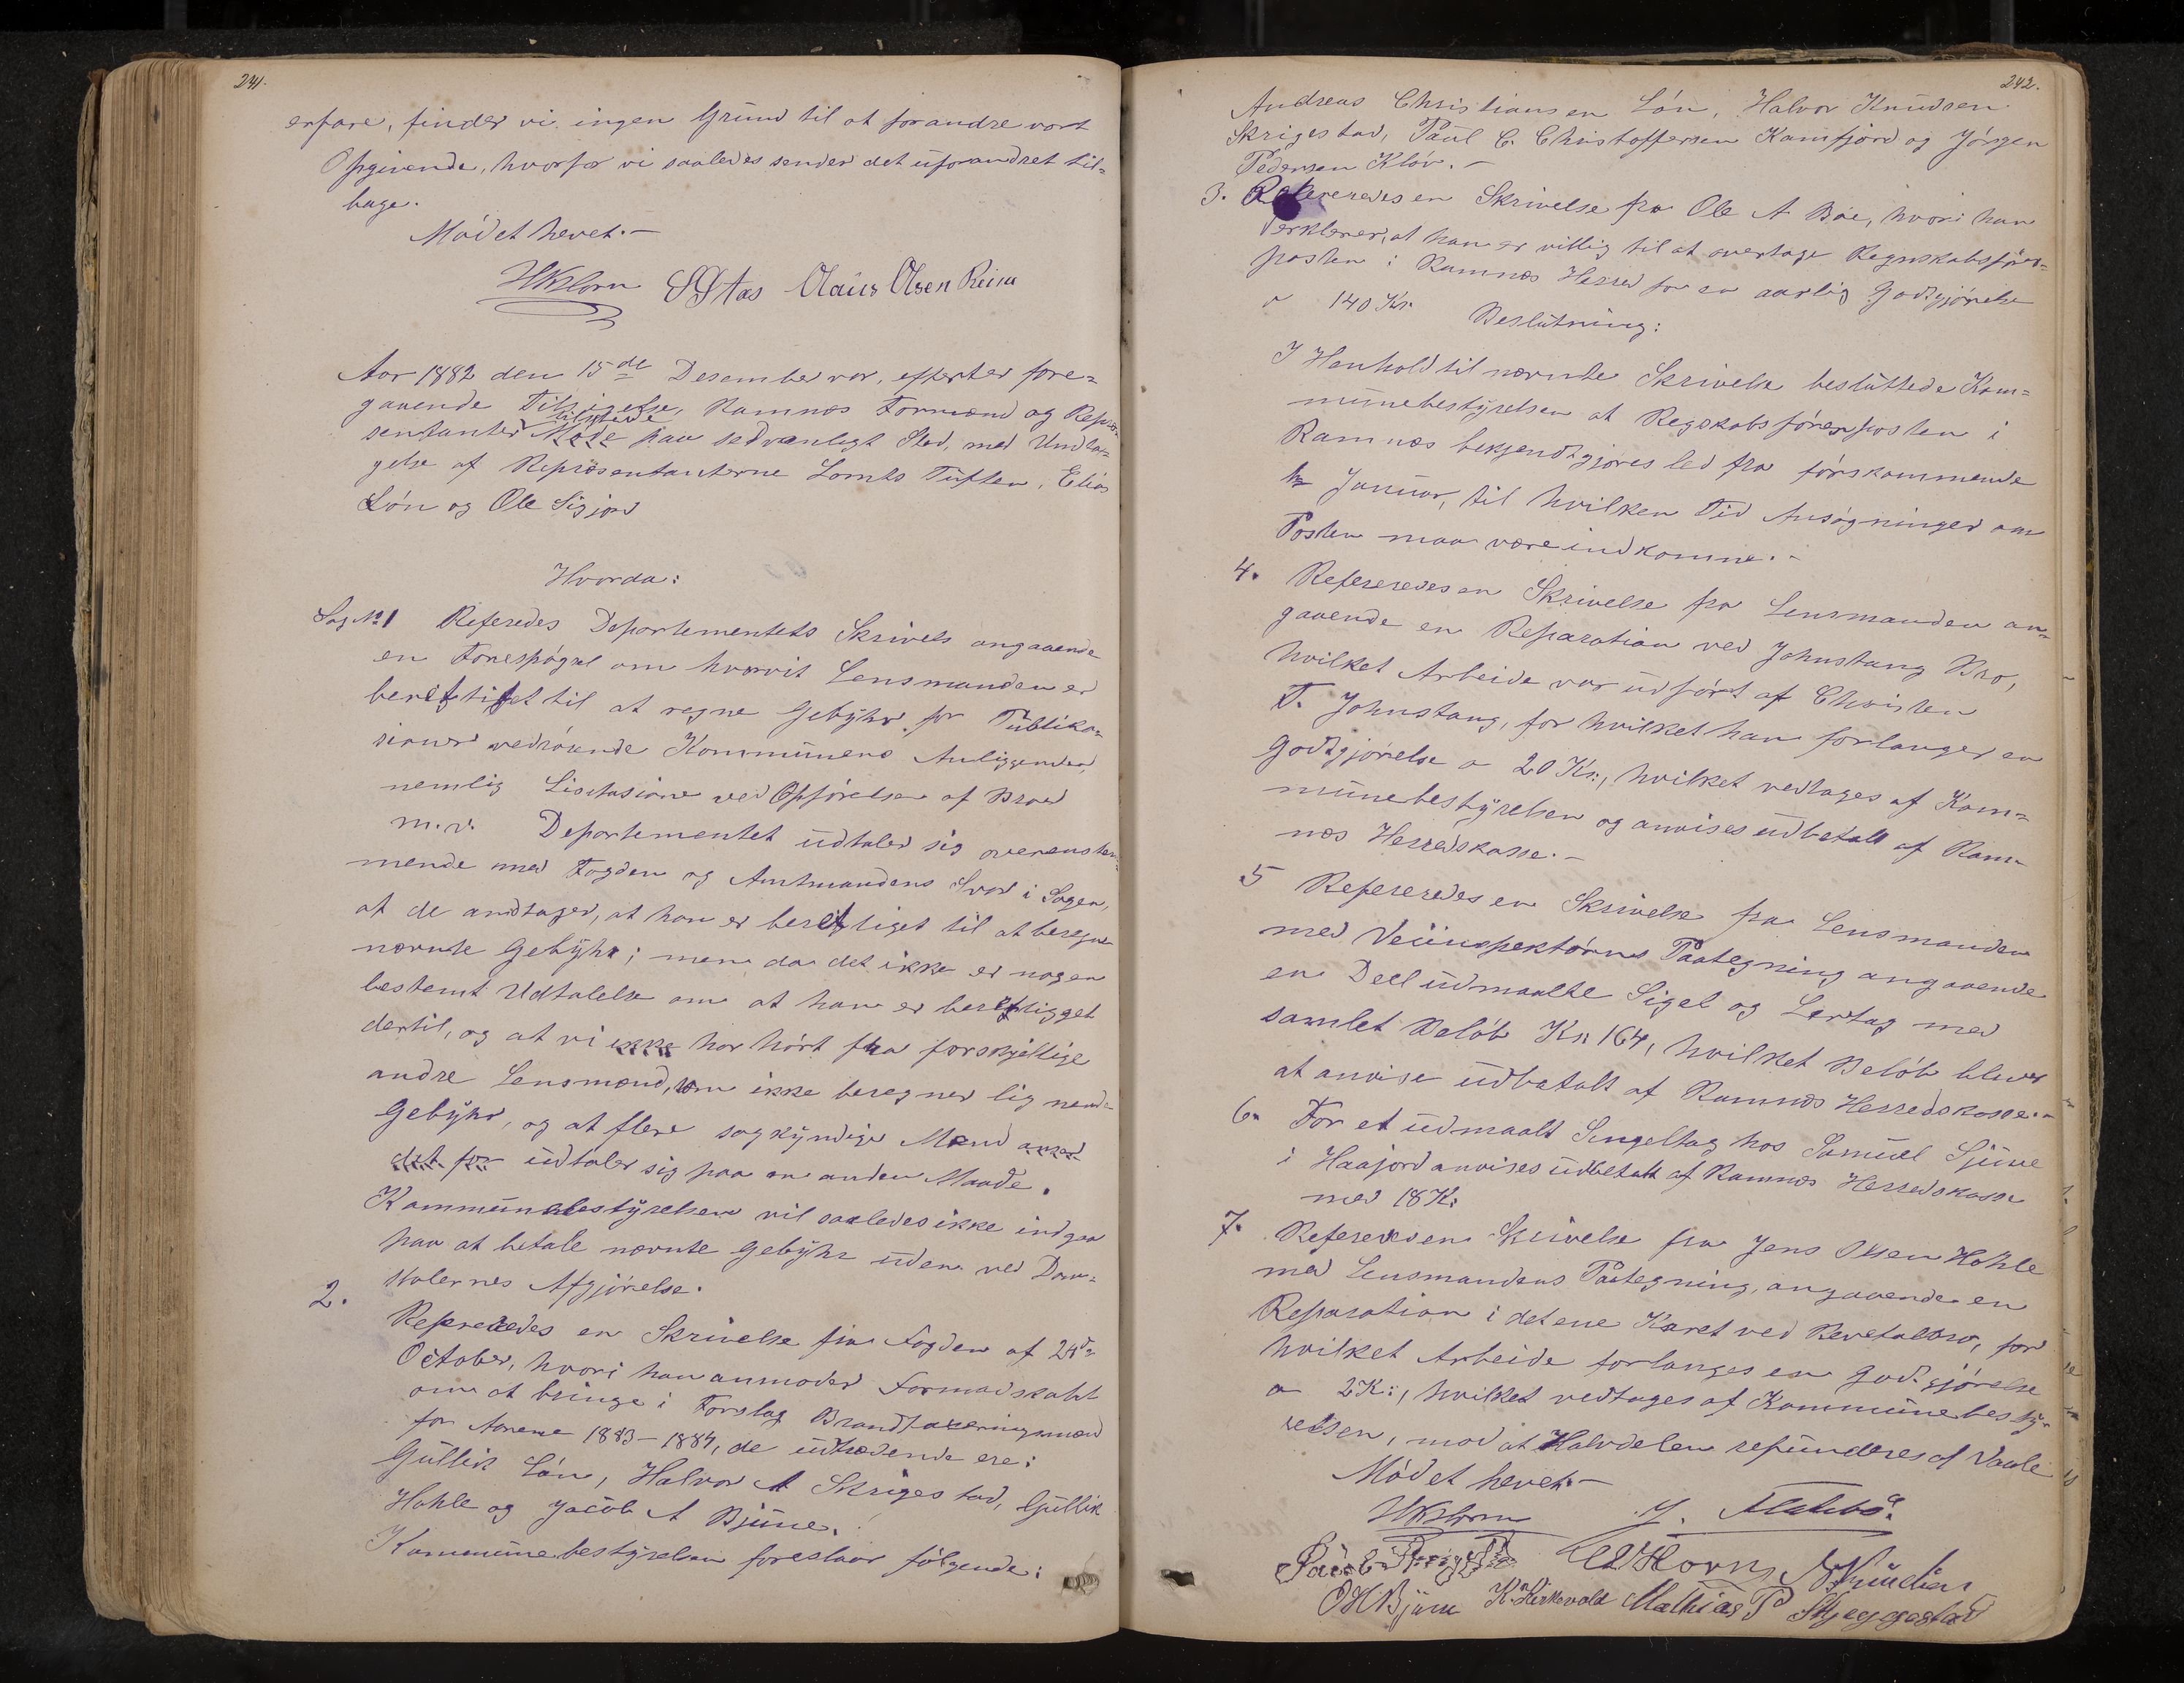 241.
erfare, finder vi ingen Grund til at forandre vort
Opgivende, hvorfor vi saaledes sender det uforandret til-
bage.
Mødet hevet.-
HKHorn Olaus Olsen Reina
Aar 1882 den 15de Desember var, efterter fore-
gaaende Tilsigelse, Ramnæs Formænd og Repræ-
tilstede
sentanter Møde paa sedvanligt Sted, med Undta-
gelse af Repræsentanterne Lornts Tuften, Elias
Løn og Ole Sigjord
Hvorda:
Sag № 1 Referedes Departementets Skrivels angaaende
en Forespøgsel om hvorvit Lensmanden er
berettiget til at regne Gebyhr for Publika-
sioner vedrørende Kommunens Anliggender,
nemlig Lisitasione ved Opførelse af Broer
m.v. Departementet udtaler sig overenstem-
mende med Fogden og Amtmandens Svar i Sagen,
at de andtager, at han er berettiget til at beregne
nævnte Gebyhr; men da det ikke er nogen
bestemt Udtalelse om at han er berettigget
dertil, og at vi ikke har hørt fra forskjellige
andre Lensmænd, som ikke beregner lignende
Gebyhr, og at flere sagkyndige Mænd anser
det for udtaler sig paa en anden Maade.
Kommunebestyrelsen vil saaledes ikke indgaa
paa at betale nævnte Gebyhr uden ved Dom-
stolernes Afgjørelse.
2. Refereredes en Skrivelse fra Fogden af 24de
October, hvori han anmoder Formadskabt
om at bringe i Forslag Brandtaxeringsmænd
for Aarene 1883-1884, de udtrædende ere:
Gullik Løn, Halvor A Skrigestad, Gullik
Hohle og Jacob A Bjune.
Kommunebestyrelsen foreslaar følgende:
242.
Andreas Christiansen Løn, Halvor Knudsen
Skrigestad, Paul C. Christoffersen Kamfjord og Jørgen
Pedersen Kløv.-
3. Refereredes en Skrivelse fra Ole A Bøe, hvori han
erklerer, at han er villig til at overtage Regnskabsfører-
posten i Ramnæs Herred for en aarlig Godtgjørelse
a 140 Kr. Beslutning:
I Henhold til nævnte Skrivelse besluttede Kom-
munebestyrelsen at Regskabsførerposten i
Ramnæs bekjendtgjøres led fra førskommende
Januar, til hvilken Tid Ansøgninger om
Posten maa være indkomne.-
4. Refereredes en Skrivelse fra Lensmanden an-
gaaende en Reparation ved Johnstang Bro,
hvilket Arbeide var udført af Christen
T. Johnstang, for hvilket han forlanger en
Godtgjørelse a 20 Kr., hvilket vedtages af Kom-
munebestyrelsen og anvises udbetalt af Ram-
næs Herredskasse.-
5 Refereredes en Skrivelse fra Lensmanden
med Veiinspektørens Paategning angaaende
en Deel udmaalte Sigel og Lertag med
samlet Beløb Kr 164, hvilket Beløb bliver
at anvise udbetalt af Ramnæs Herredskasse.-
6. For et udmaalt Singeltag hos Samuel Sjune
i Haajord anvises udbetalt af Ramnæs Herredskasse
med 18 K:
7. Refereredes en Skrivelse fra Jens Olsen Hohle
med Lensmandens Paategning, angaaende en
Reparation i det ene Karet ved Revetalbro, for
hvilket Arbeide forlanges en Godtgjørelse
a 2 K:, hvilket vedtages af Kommunebesty-
relsen, mod at Halvdelen refunderes af Vaale
Mødet hevet.-
HKHorn
Horn AKnudsen
OHBjune K. Kirkevold Mathias P Skjeggestad